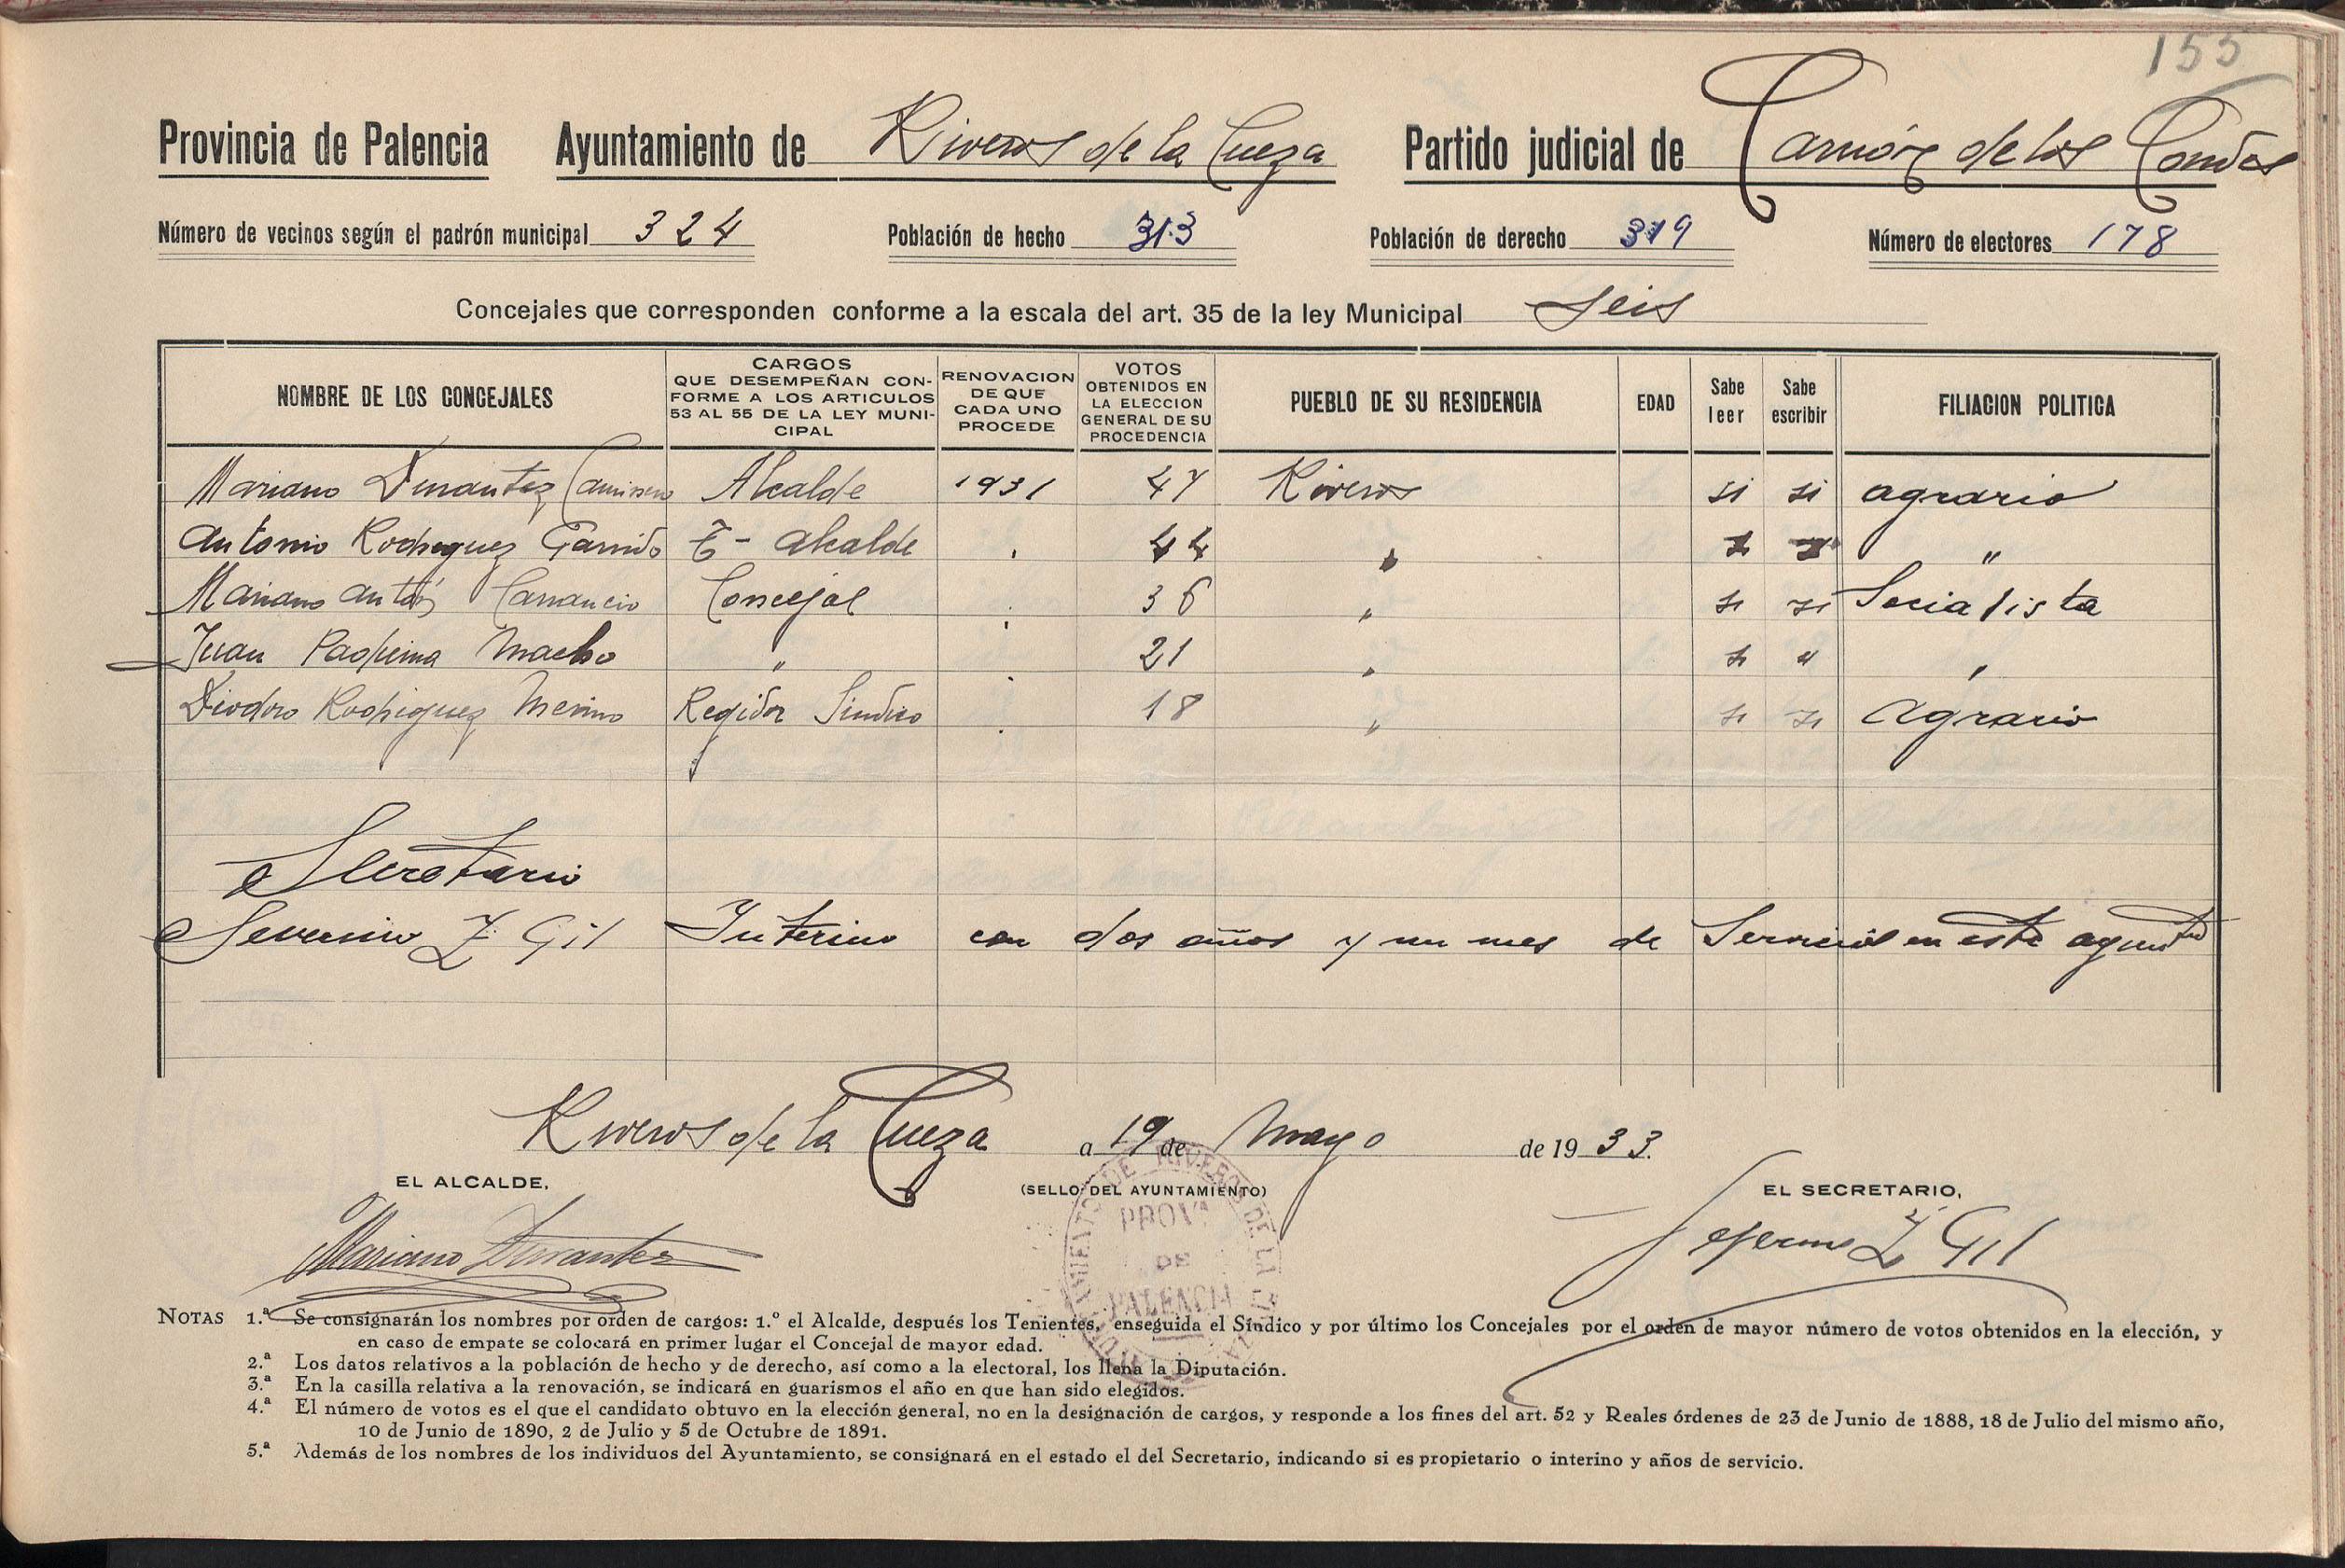 155
Provincia de Palencia Ayuntamiento de Riveros de la Cueza Partido judicial de Carrión de los Condes
Número de vecinos según el padrón municipal 324 Población de hecho 313 Población de derecho 319 Número de electores 178
Concejales que corresponden conforme a la escala del art. 35 de la ley Municipal Seis
NOMBRE DE LOS CONCEJALES CARGOS QUE DESEMPEÑAN CONFORME A LOS ARTICULOS 53 AL 55 DE LA LEY MUNICIPAL RENOVACION DE QUE CADA UNO PROCEDE VOTOS OBTENIDOS EN LA ELECCION GENERAL DE SU PROCEDENCIA PUEBLO DE SU RESIDENCIA EDAD Sabe leer Sabe escribir FILIACION POLITICA
Mariano Durantez Caminero Alcalde 1931 47 Riveros si si agrario
Antonio Rodriguez Garrido T- alcalde " 44 " si si "
Mariano Antón Carrancio Concejal " 36 " si si Socialista
Juan Macho " " 21 " si " "
Diodoro Rodriguez Merino Regidor Sindico " 18 " si si Agrario
Secretario
Severino Z. Gil Interino con dos años y un mes de Servicios en este aynt
Riveros de la Cueza a 19 de Mayo de 1933.
EL ALCALDE, (SELLO DEL AYUNTAMIENTO) EL SECRETARIO,
PROVª DE PALENCIA
Mariano Durantez Severino Z Gil
NOTAS 1.ª Se consignarán los nombres por orden de cargos: 1.º el Alcalde, después los Tenientes, enseguida el Síndico y por último los Concejales por el orden de mayor número de votos obtenidos en la elección, y
en caso de empate se colocará en primer lugar el Concejal de mayor edad.
2.ª Los datos relativos a la población de hecho y de derecho, así como a la electoral, los llena la Diputación.
3.ª En la casilla relativa a la renovación, se indicará en guarismos el año en que han sido elegidos.
4.ª El número de votos es el que el candidato obtuvo en la elección general, no en la designación de cargos, y responde a los fines del art. 52 y Reales órdenes de 23 de Junio de 1888, 18 de Julio del mismo año,
10 de Junio de 1890, 2 de Julio y 5 de Octubre de 1891.
5.ª Además de los nombres de los individuos del Ayuntamiento, se consignará en el estado el del Secretario, indicando si es propietario o interino y años de servicio.